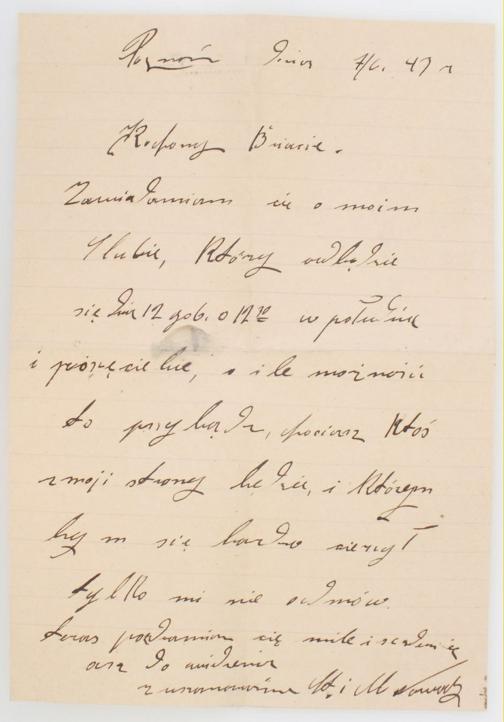 Poznań dnia 7/6. 47 r
Kochany Bracie.
Zawiadamiam cię o moim
Ślubie, Który odbędzie
się dnia 12 god. o 12 w południe
i proszę ciebie, o ile możności
to przybądź, chociarz Ktoś
zmoji strony będzie, i Którym
bym się bardzo cieszył
tylko mi nie odmów.
teras pozdrawiam cię mile i serdecznie
oraz do widzenia
z uszanowaniem St. i M